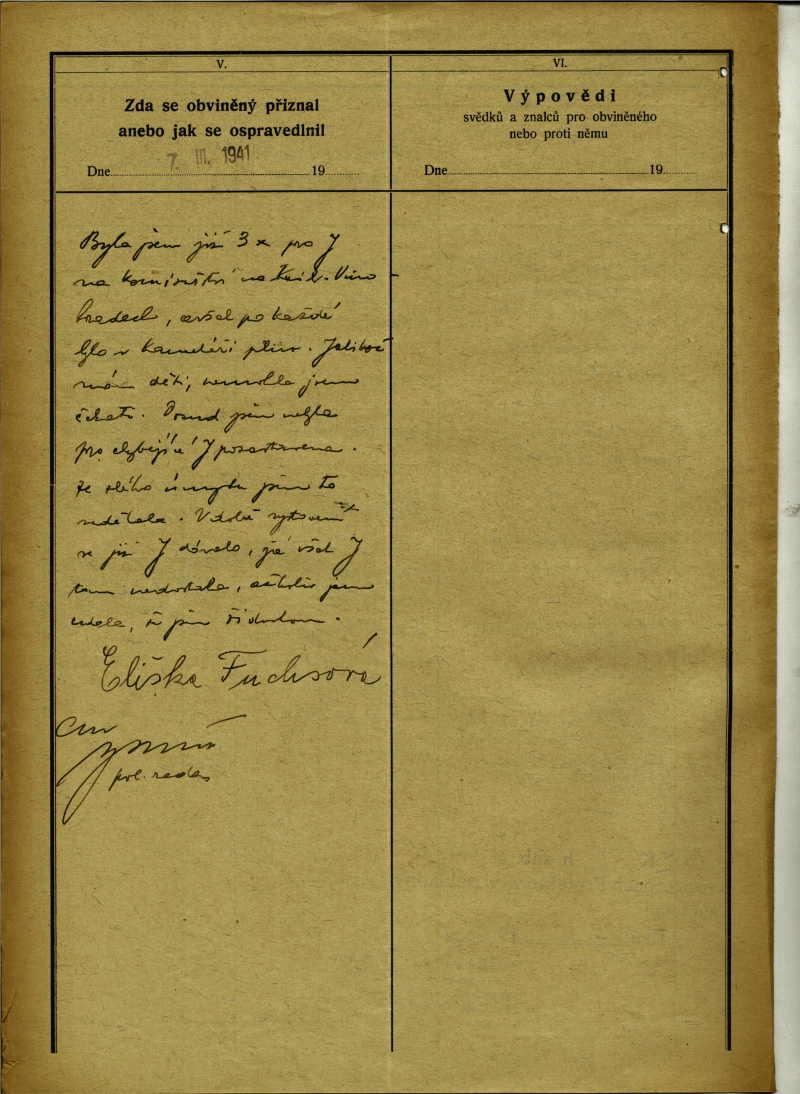 V.
Zda se obviněný přiznal
anebo jak se ospravedlnil
Dne 7. III. 1941 19
VI.
Výpovědi
svědků a znalců pro obviněného
nebo proti němu
Dne 19
Byla jsem již 3x pro J
na komisařství na Král. Vino
hradech, avšak po každé
bylo v kanceláři plno. Jelikož
mám děti, nemohla jsem
čekati. Dosud jsem nebyla
pro chybějící J pozastavena.
Ze zlého úmyslu jsem to
nedělala. V době
se již J dávalo, já však J
tam nedostala, ačkoliv jsem
udala, že jsem židovkou.
Eliška Fuchsová
pol. rada